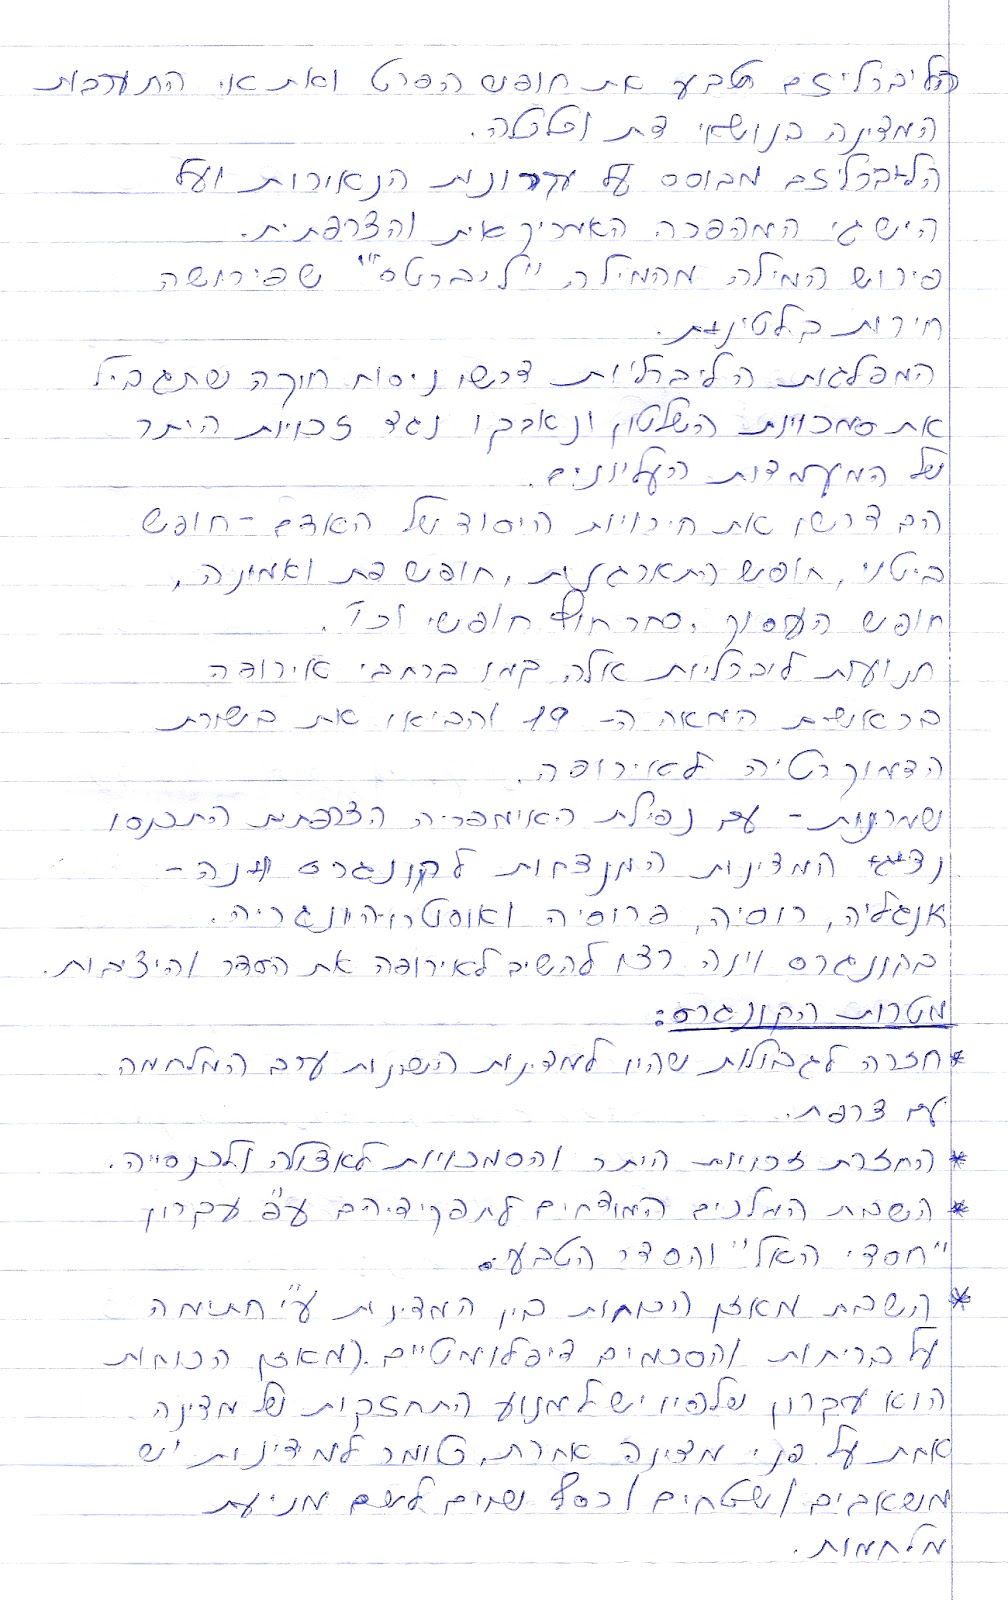 הליברליזם תבע את חופש הפרט ואת אי התערבות
המדינה בנושאי דת וכלכלה.
הליברליזם מבוסס על עקרונות הנאורות ועל
הישגי המהפכה האמריקאית והצרפתית.
פירוש המילה מהמילה "ליברטס" שפירושה
חירות בלטינית.
המפלגות הליברליות דרשו ניסוח חוקה שתגביל
את סמכויות השלטון ונאבקו נגד זכויות היתר
של המעמדות העליונים.
הם דרשו את חירויות היסוד של האדם - חופש
ביטוי, חופש התארגנות, חופש דת ואמונה,
חופש העסוק, סחר חוץ חופשי וכו'.
תנועות ליברליות אלה קמו ברחבי אירופה
בראשית המאה ה- 19 והביאו את בשורת
הדמוקרטיה לאירופה.
שמרנות - עם נפילת האימפריה הצרפתית התכנסו
נציגי המדינות המנצחות לקונגרס וינה -
אנגליה, רוסיה, פרוסיה ואוסטרו-הונגריה.
בקונגרס וינה רצו להשיב לאירופה את הסדר והיציבות.
מטרות הקונגרס:
* חזרה לגבולות שהיו למדינות השונות ערב המלחמה
עם צרפת.
* החזרת זכויות היתר והסמכויות לאצולה ולכנסייה.
* השבת המלכים המודחים לתפקידיהם ע"פ עקרון
"חסדי האל" והסדר הטבעי.
* השבת מאזן הכוחות בין המדינות ע"י חתימה
על בריתות והסכמים דיפלומטיים. (מאזן הכוחות
הוא עקרון שלפיו יש למנוע התחזקות של מדינה
אחת על פני מדינה אחרת, כלומר למדינות יש
משאבים / שטחים / כסף שווים לשם מניעת
מלחמות.